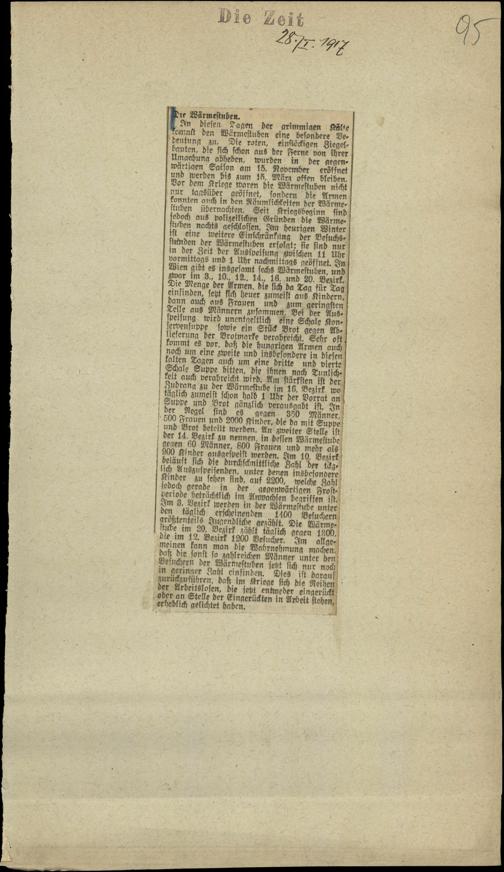 Die Zeit
28./I. 1917
95
Die Wärmestuben.
In diesen Tagen der grimmigen Kälte
kommt den Wärmestuben eine besondere Be-
deutung zu. Die roten, einstöckigen Ziegel-
bauten, die sich schon aus der Ferne von ihrer
Umgebung abheben, wurden in der gegen-
wärtigen Saison am 15. November eröffnet
und werden bis zum 15. März offen bleiben.
Vor dem Kriege waren die Wärmestuben nicht
nur tagsüber geöffnet, sondern die Armen
konnten auch in den Räumlichkeiten der Wärme-
stuben übernachten. Seit Kriegsbeginn sind
jedoch aus polizeilichen Gründen die Wärme-
stuben nachts geschlossen. Im heurigen Winter
ist eine weitere Einschränkung der Besuchs-
stunden der Wärmestuben erfolgt; sie sind nur
in der Zeit der Ausspeisung zwischen 11 Uhr
vormittags und 1 Uhr nachmittags geöffnet. In
Wien gibt es insgesamt sechs Wärmestuben, und
zwar im 3., 10., 12., 14., 16. und 20. Bezirk.
Die Menge der Armen, die sich da Tag für Tag
einfinden, setzt sich heuer zumeist aus Kindern,
dann auch aus Frauen und zum geringsten
Teile aus Männern zusammen. Bei der Aus-
speisung wird unentgeltlich eine Schale Kon-
servensuppe sowie ein Stück Brot gegen Ab-
lieferung der Brotmarke verabreicht. Sehr oft
kommt es vor, daß die hungrigen Armen auch
noch um eine zweite und insbesondere in diesen
kalten Tagen auch um eine dritte und vierte
Schale Suppe bitten, die ihnen nach Tunlich-
keit auch verabreicht wird. Am stärksten ist der
Zudrang zu der Wärmestube im 16. Bezirk, wo
täglich zumeist schon halb 1 Uhr der Vorrat an
Suppe und Brot gänzlich verausgabt ist. In
der Regel sind es gegen 350 Männer,
500 Frauen und 2000 Kinder, die da mit Suppe
und Brot beteilt werden. An zweiter Stelle ist
der 14. Bezirk zu nennen, in dessen Wärmestube
gegen 60 Männer, 800 Frauen und mehr als
900 Kinder ausgespeist werden. Im 10. Bezirk
beläuft sich die durchschnittliche Zahl der täg-
lich Auszuspeisenden, unter denen insbesondere
Kinder zu sehen sind, auf 2200, welche Zahl
jedoch gerade in der gegenwärtigen Frost-
periode beträchtlich im Anwachsen begriffen ist.
Im 3. Bezirk werden in der Wärmestube unter
den täglich erscheinenden 1400 Besuchern
größtenteils Jugendliche gezählt. Die Wärme-
stube im 20. Bezirk zählt täglich gegen 1800,
die im 12. Bezirk 1200 Besucher. Im allge-
meinen kann man die Wahrnehmung machen,
daß die sonst so zahlreichen Männer unter den
Besuchern der Wärmestuben jetzt sich nur noch
in geringer Zahl einfinden. Dies ist darauf
zurückzuführen, daß im Kriege sich die Reihen
der Arbeitslosen, die jetzt entweder eingerückt
oder an Stelle der Eingerückten in Arbeit stehen,
erheblich gelichtet haben.